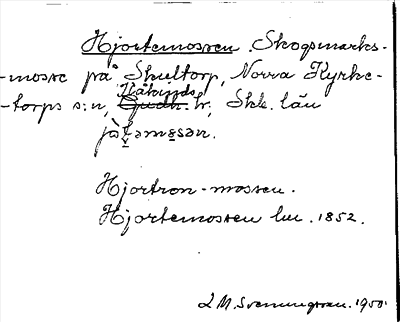 Hjortemossen. Skogsmarks-
-mosse på Skultorp, Norra Kyrke-
-torps s:n, Kåkinds hr, Skb. län
jòṭəmo̤sən.
Hjortron-mossen.
Hjortemossen lm. 1852.
L M. Svenungsson. 1950.